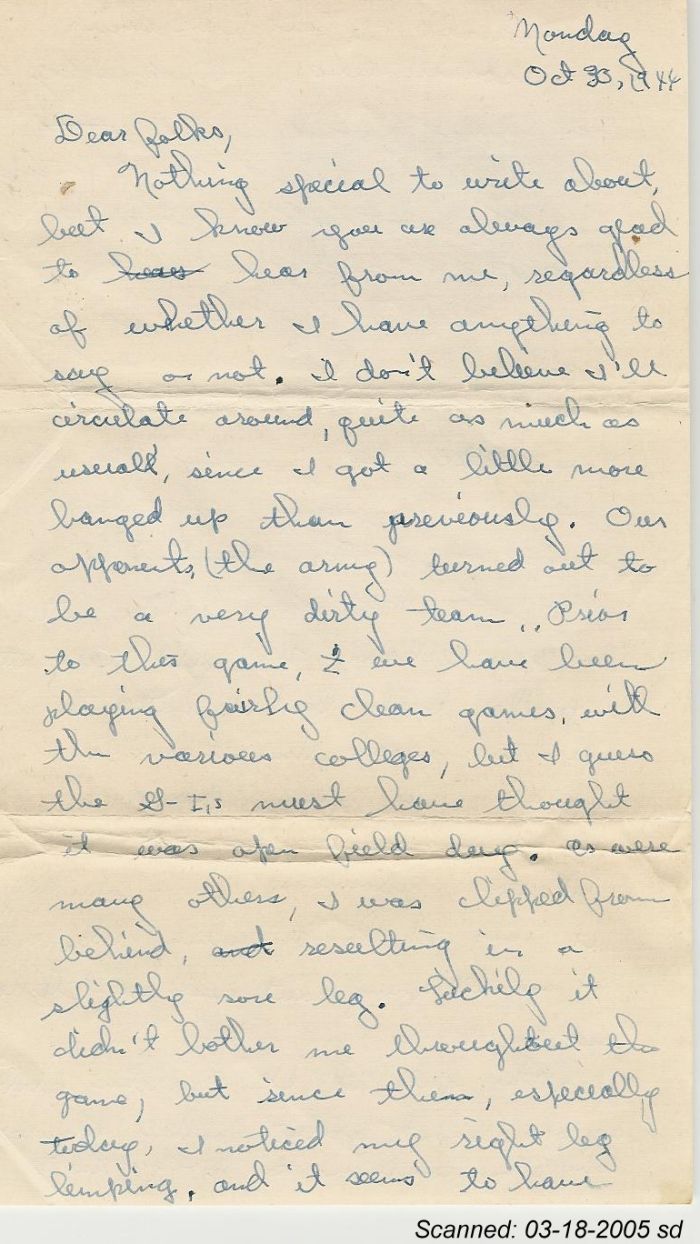 Monday
Oct 30, 1944
Dear folks,
Nothing special to write about,
but I know you are always glad
to hear hear from me, regardless
of whether I have anything to
say or not. I don't believe I'll
circulate around, quite as much as
usual, since I got a little more
banged up than previously. Our
opponents, (the army) turned out to
be a very dirty team.. Prior
to this game, we have been
playing fairly clean games, with
the various colleges, but I guess
the G-I,s must have thought
it was open field day. As were
many others, I was clipped from
behind, and resulting in a
slightly sore leg. Luckily it
didn't bother me throughout the
game, but since then, especially
today, I noticed my right leg
limping. and it seems to have
Scanned: 03-18-2005 sd